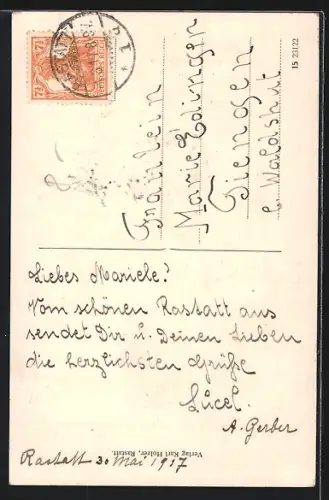 Liebes Mariele!
Vom schönen Rastatt aus
sendet Dir u. Deinen Lieben
die herzlichsten Grüße
Lucel.
A. Gerber
Rastatt 30 Mai 1917
Fräulein
Marie Edinger
Tiengen
b. Waldshut
Verlag Karl Holzer, Rastatt.
15 23122
7½
7½